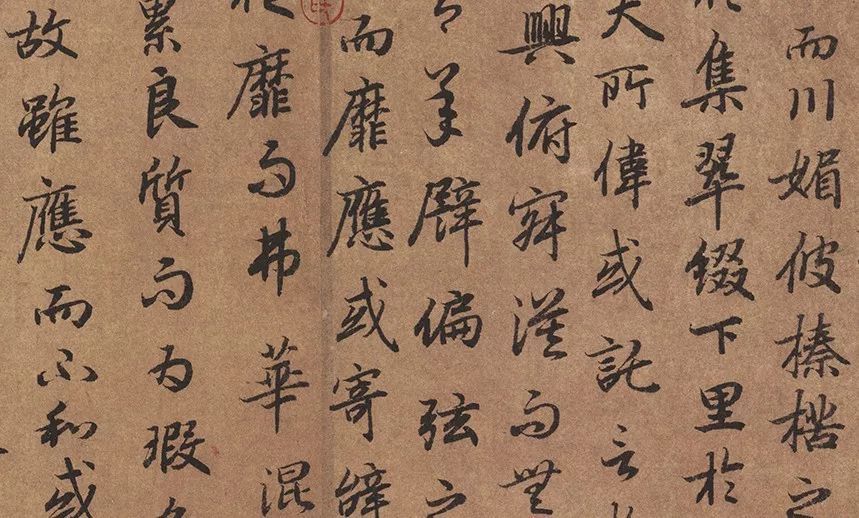 而川媚彼榛楛之
於集翠綴下里於
夫所偉或託言於
興俯寂漠而無
承譬偏弦之
而靡應或寄辭
靡而弗華混
累良質而為瑕
故雖應而不和或